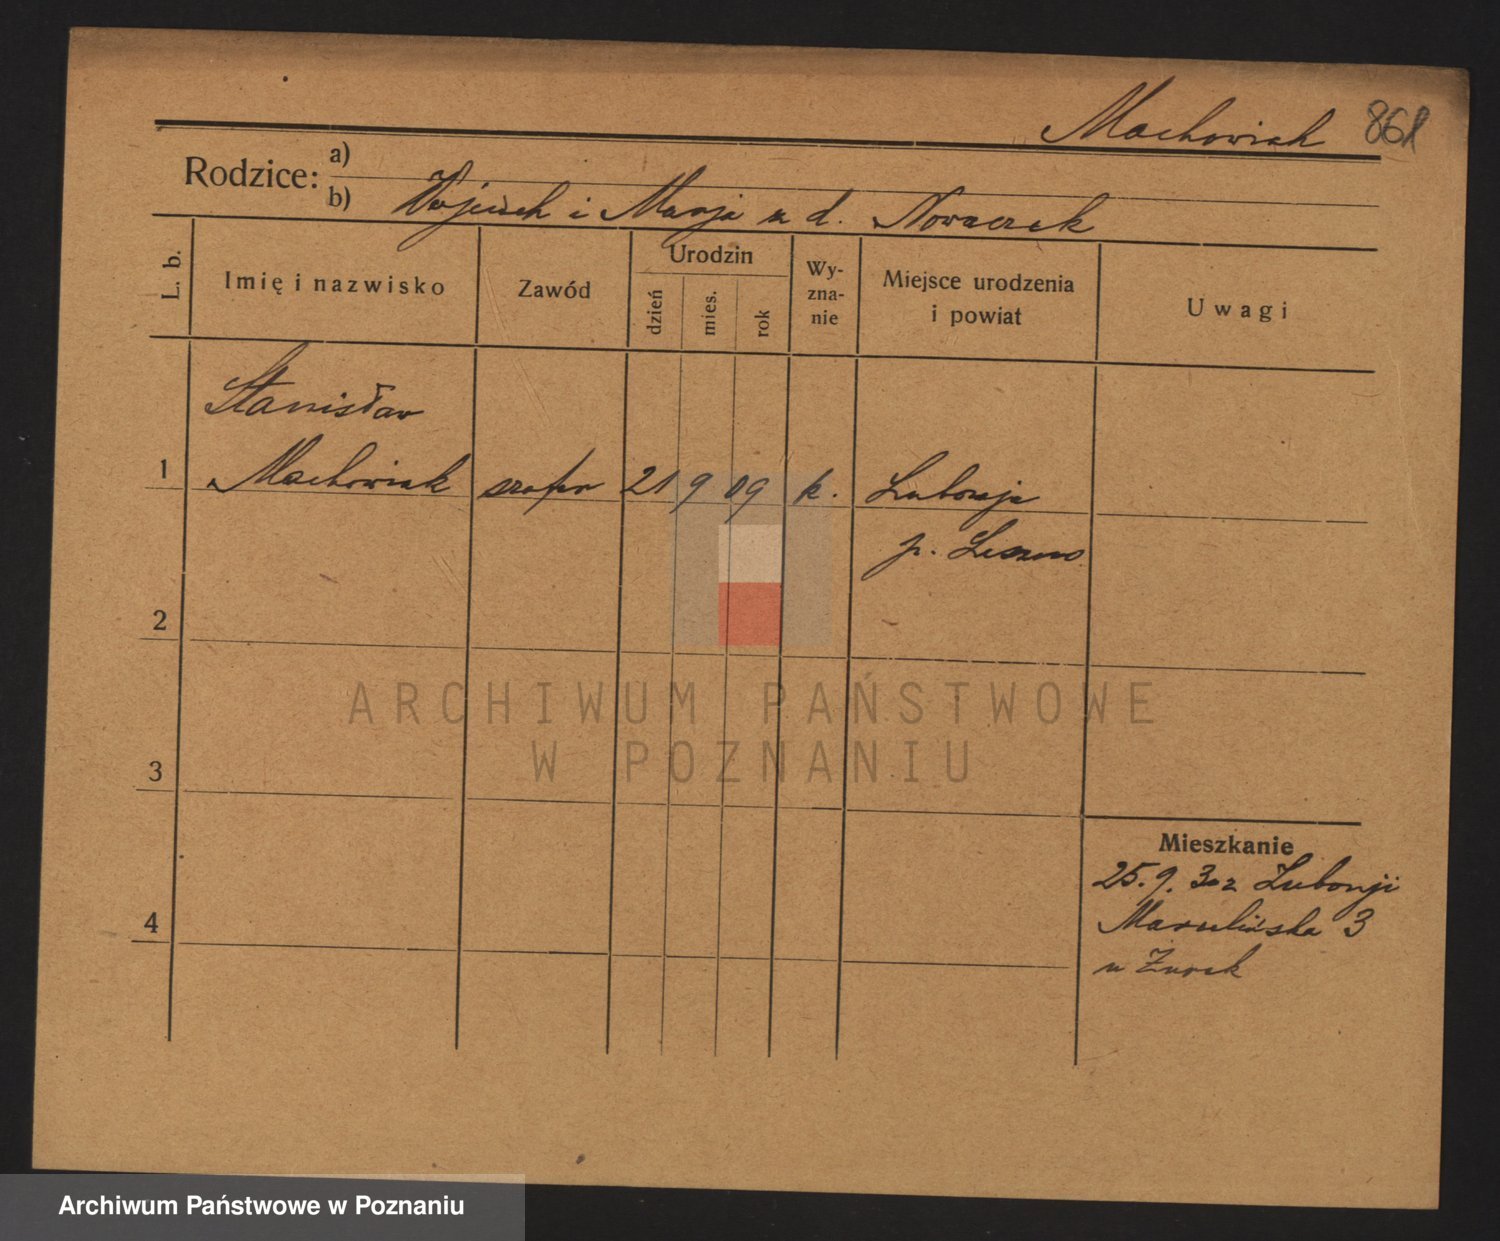 Machowiak 861
Rodzice: a)
b) Wojciech i Marja z d. Nowaczek
L. b.
Imię i nazwisko
Zawód
Urodzin
dzień
mies.
rok
Wy-
zna-
nie
Miejsce urodzenia
i powiat
Uwagi
Stanisław
1 Machowiak szofer 21 9 09 k. Luboněja
p. Leszno
2
3
4
ARCHIWUM PAŃSTWOWE
W POZNANIU
Mieszkanie
25.9. 30 z Lubonji
3
u Żurek
Archiwum Państwowe w Poznaniu